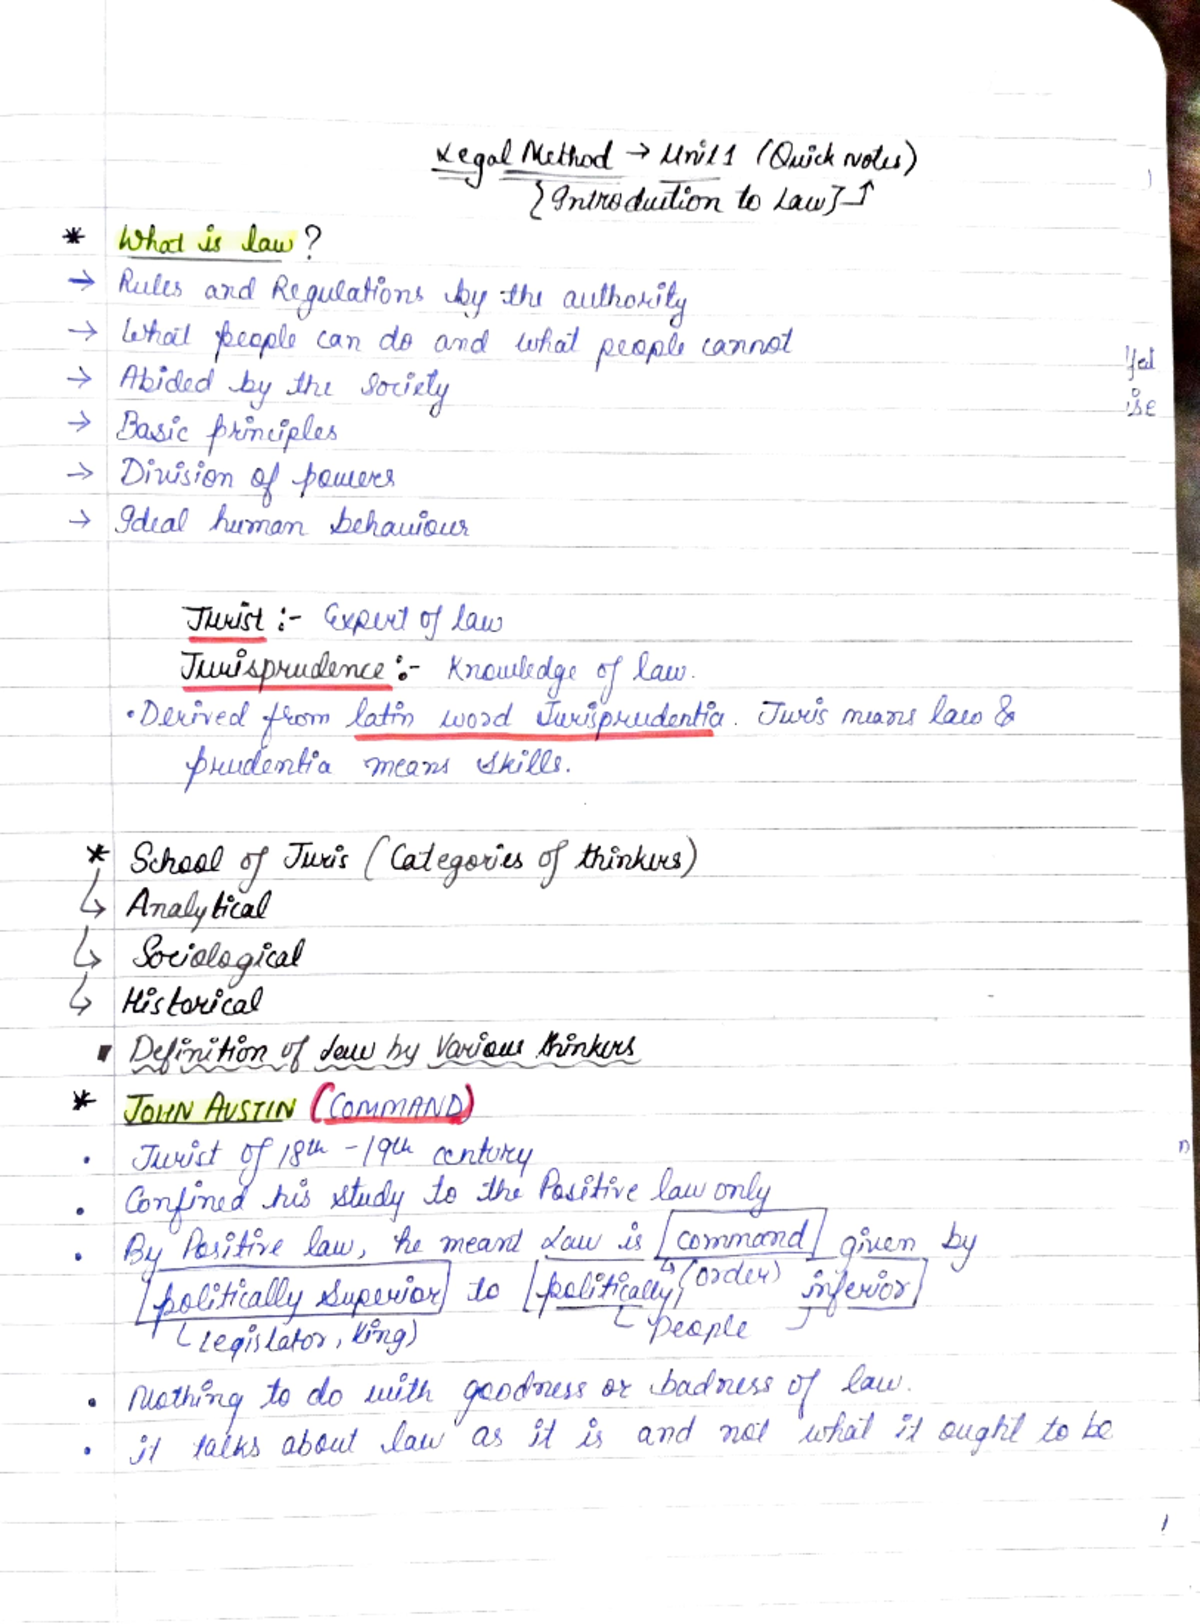 Legal Method → Unit 1 (Quick notes)
{Introduction to Law}
* What is law?
→ Rules and Regulations by the authority
→ What people can do and what people cannot
→ Abided by the society
→ Basic principles
→ Division of powers
→ Ideal human behaviour
Jurist :- Expert of law
Jurisprudence :- Knowledge of law.
• Derived from latin word Jurisprudentia. Juris means law &
prudentia means skills.
* School of Juris (Categories of thinkers)
↳ Analytical
↳ Sociological
↳ Historical
▪ Definition of law by Various thinkers
* JOHN AUSTIN (COMMAND)
• Jurist of 18th - 19th century
• Confined his study to the Positive law only
• By Positive law, he meant Law is [command] given by
[politically superior] to [politically inferior]
↳ (order)
↳ Legislator, King) ↳ people
• Nothing to do with goodness or badness of law.
• it talks about law as it is and not what it ought to be
1